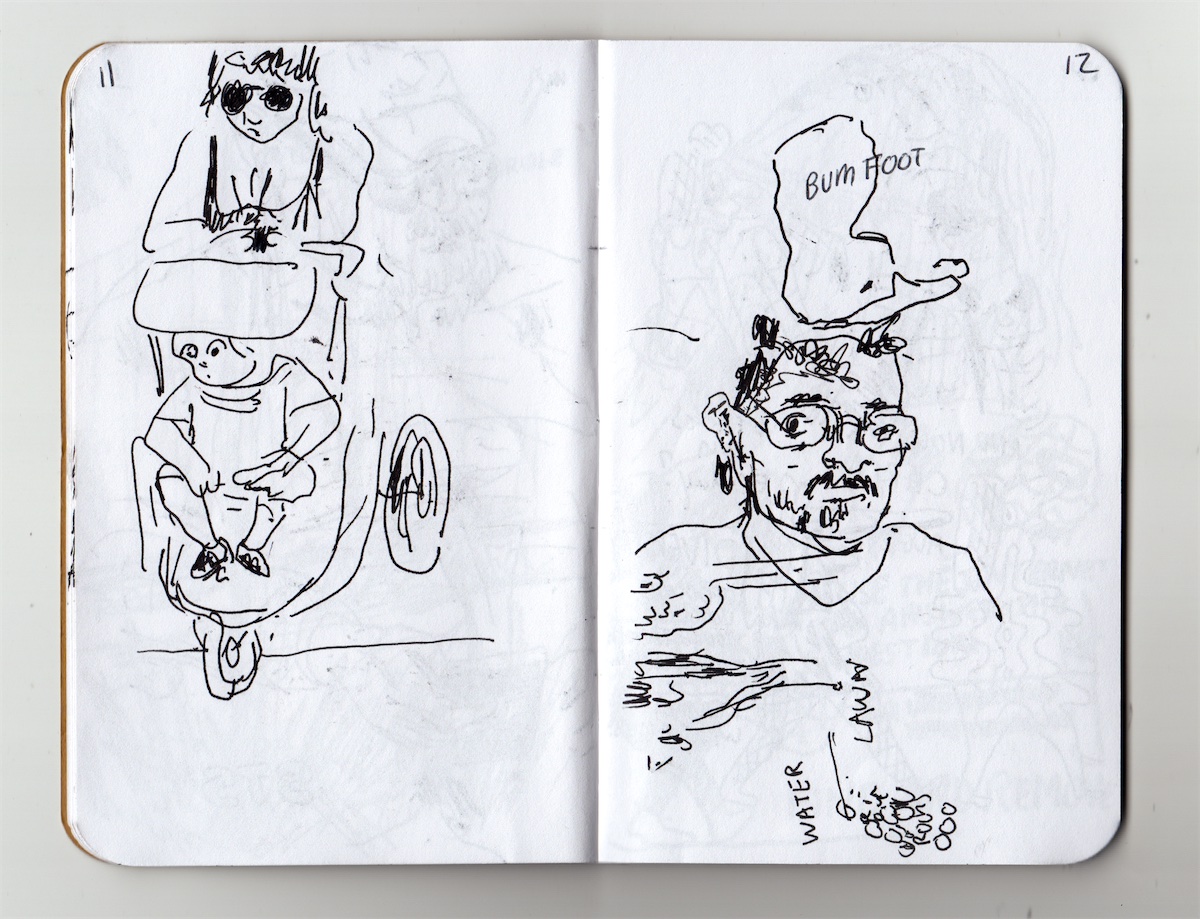 11
12
BUM FOOT
LAWN
WATER